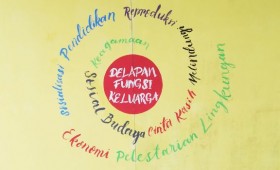 DELAPAN
FUNGSI
KELUARGA
Keagamaan
Sosial Budaya
Cinta Kasih
Melindungi
Reproduksi
Sosialisasi Pendidikan
Ekonomi
Pelestarian Lingkungan